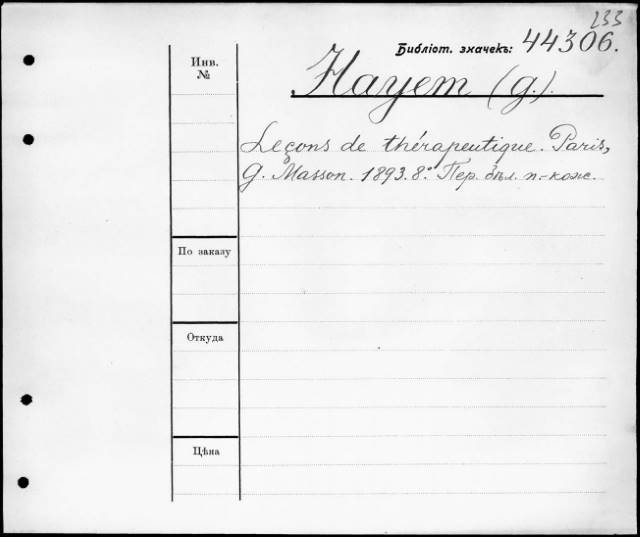 233
Библіот. значекъ: 44306.
Инв.
№
Hayem (G.).
Leçons de thérapeutique. Paris,
G. Masson. 1893. 8º. Пер. бѣл. п.-кожс.
По заказу
Откуда
Цѣна